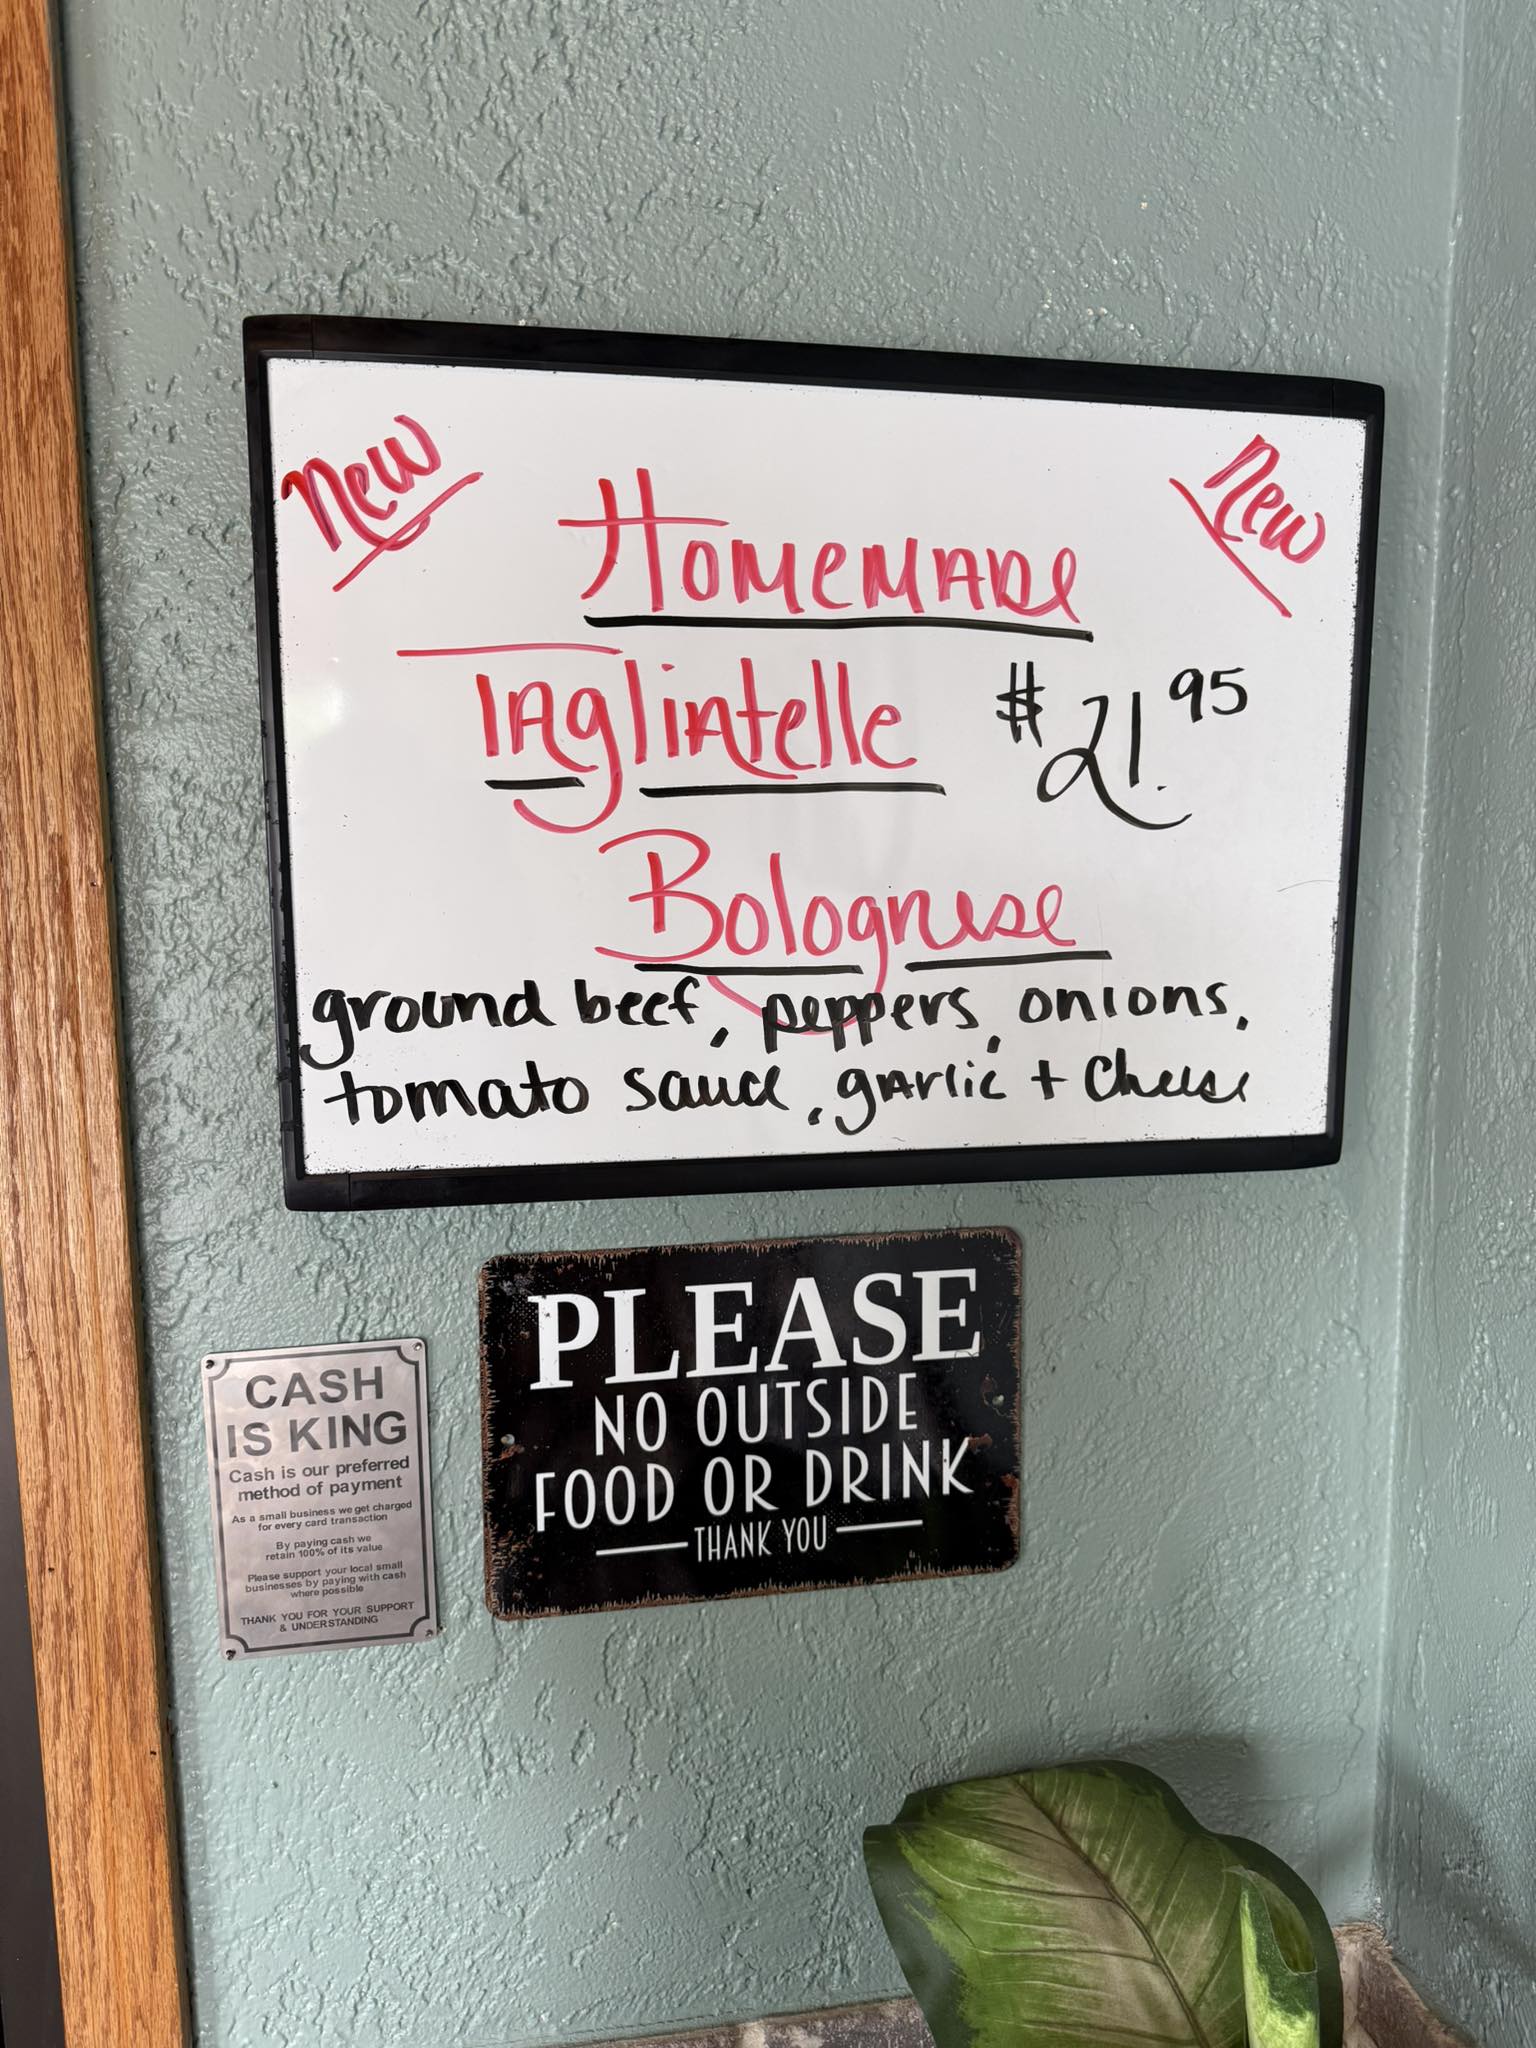 New
New
Homemade
Tagliatelle $21.95
Bolognese
ground beef, peppers, onions,
tomato sauce, garlic + cheese
PLEASE
NO OUTSIDE
FOOD OR DRINK
THANK YOU
CASH
IS KING
Cash is our preferred
method of payment
As a small business we get charged
for every card transaction
By paying cash we
retain 100% of its value
Please support your local small
businesses by paying with cash
where possible
THANK YOU FOR YOUR SUPPORT
& UNDERSTANDING